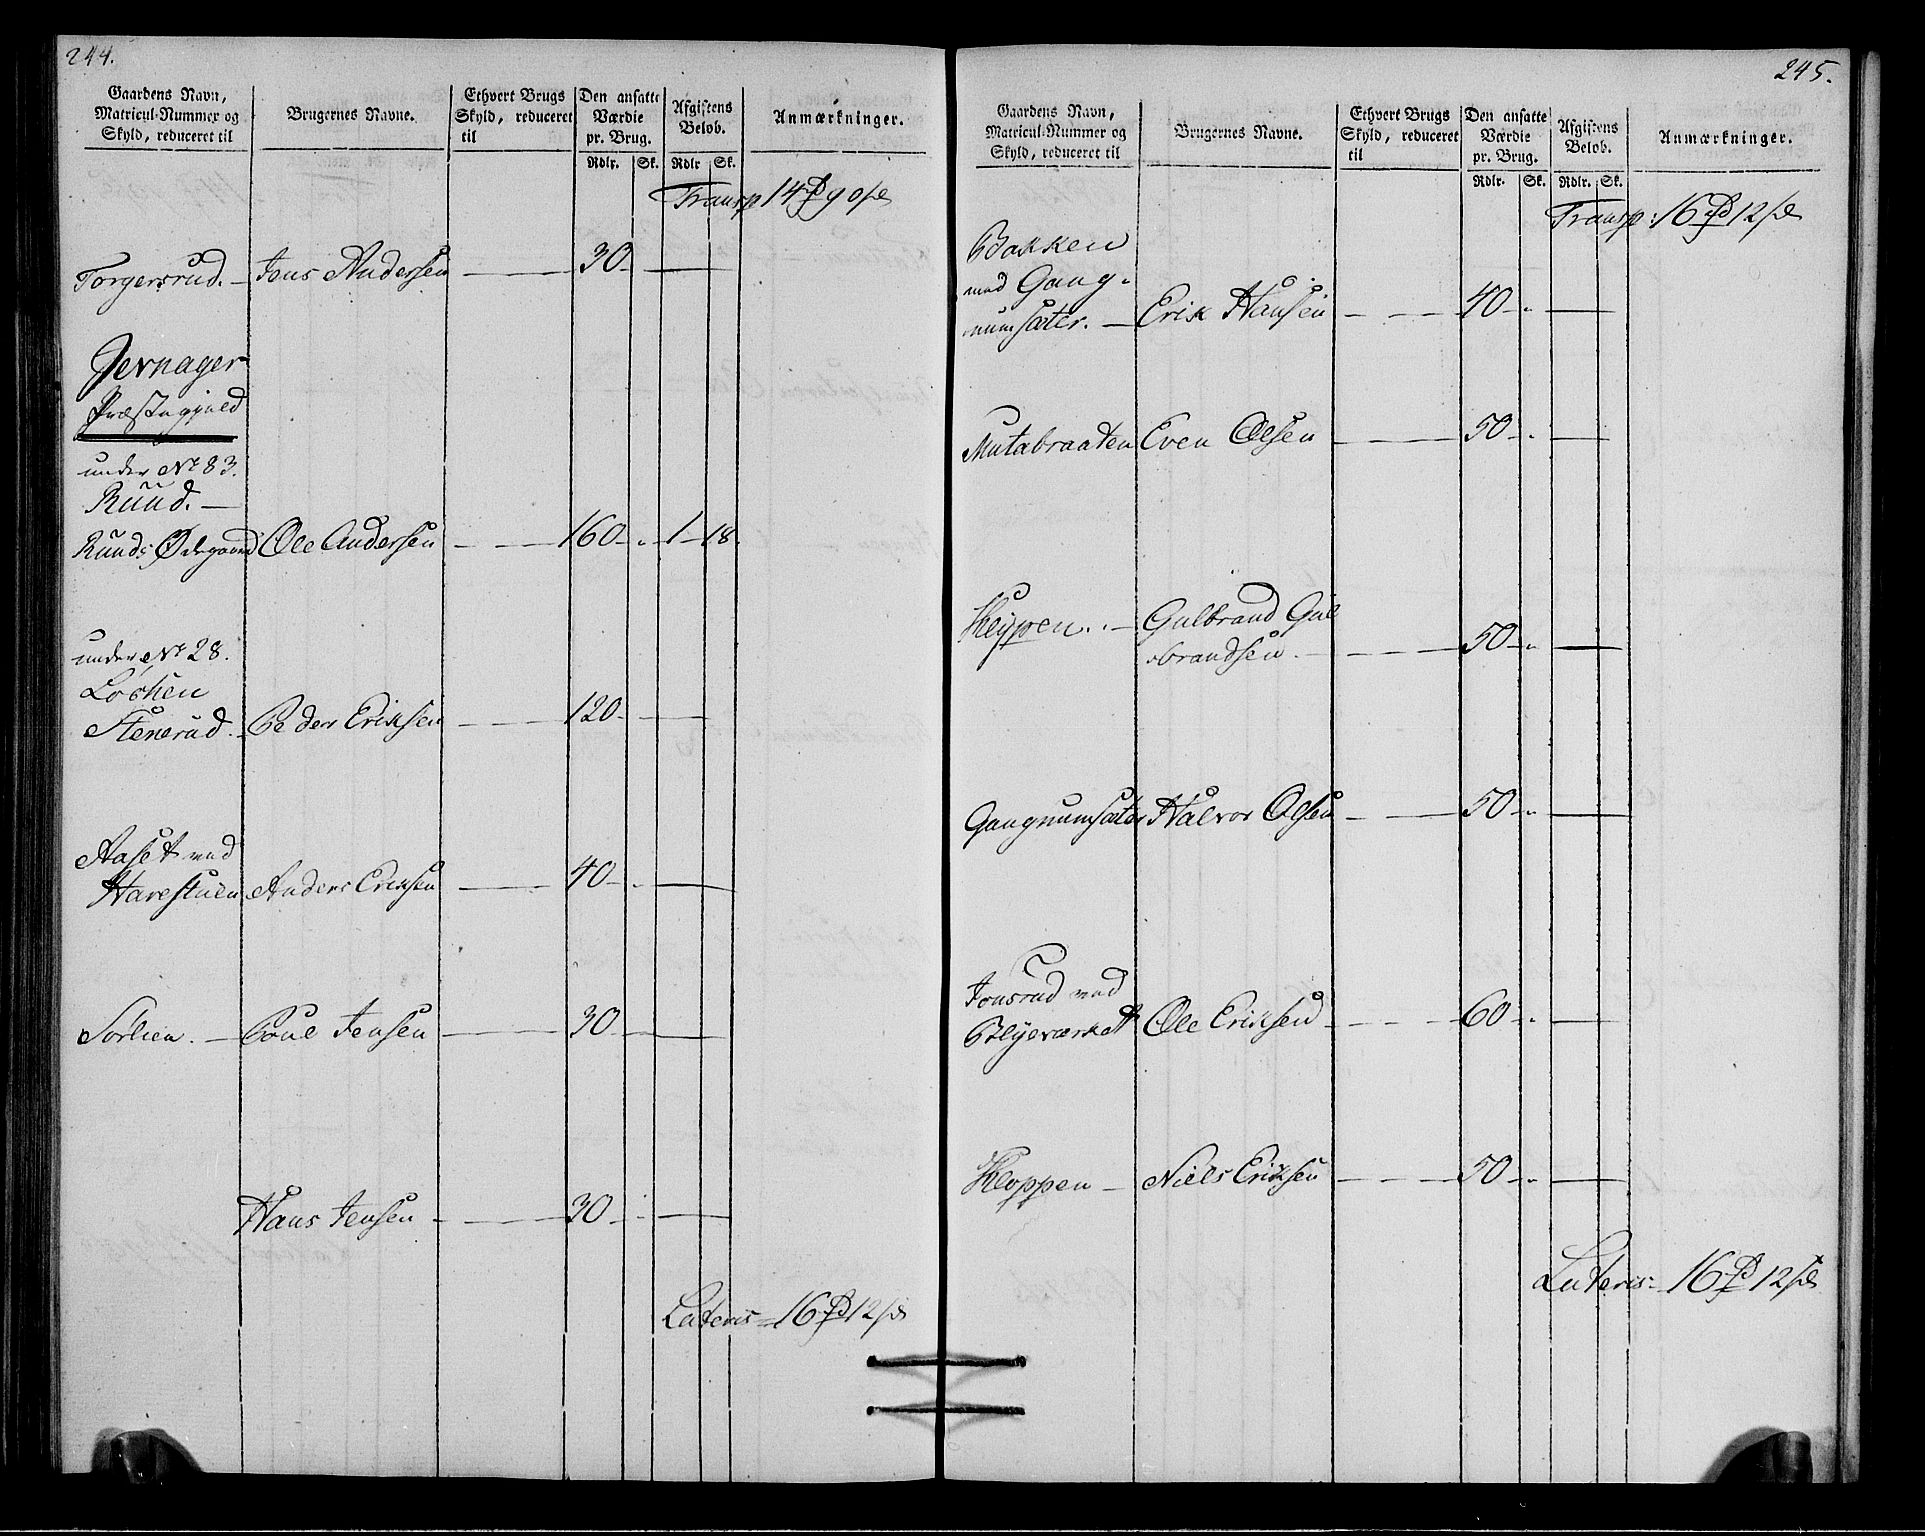 244.
Gaardens Navn, Matricul-Nummer og Skyld, reduceret til
Brugernes Navne.
Ethvert Brugs Skyld, reduceret til
Den ansatte Værdie pr. Brug.
Afgiftens Beløb.
Anmærkninger.
Rdlr. Sk. Rdlr Sk.
Transp 14 90
Torgersrud. — Jens Andersen — 30 —
Jevnager
Præstegjeld
under No 83.
Ruud. —
Ruuds Ødegaard Ole Andersen — 160 - 1 - 18.
under No 28.
Løchen
Stenerud. - Peder Eriksen — 120 —
Aaset ved
Harestuen Anders Eriksen — 40 —
Sørlien. — Poul Jensen — 30 —
Hans Jensen — 30 —
Lateris = 16 12
245.
Gaardens Navn, Matricul-Nummer og Skyld, reduceret til
Brugernes Navne.
Ethvert Brugs Skyld, reduceret til
Den ansatte Værdie pr. Brug.
Afgiftens Beløb.
Anmærkninger.
Rdlr. Sk. Rdlr. Sk.
Transp: 16 12
Bakken
med Gang-
numsæter. — Erik Hansen — 40 —
Mutabraaten Even Olsen — 50 —
Klypen. — Gulbrand Gul
brandsen — 50 —
Gangnumsæter Halvor Olsen — 50 —
Jonsrud ved
Blyeværket Ole Eriksen — 60 —
Kloppen — Niels Eriksen — 50 —
Lateris = 16 12